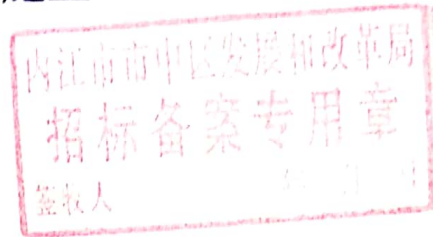 内江市市中区发展和改革局
招标备案专用章
签收人